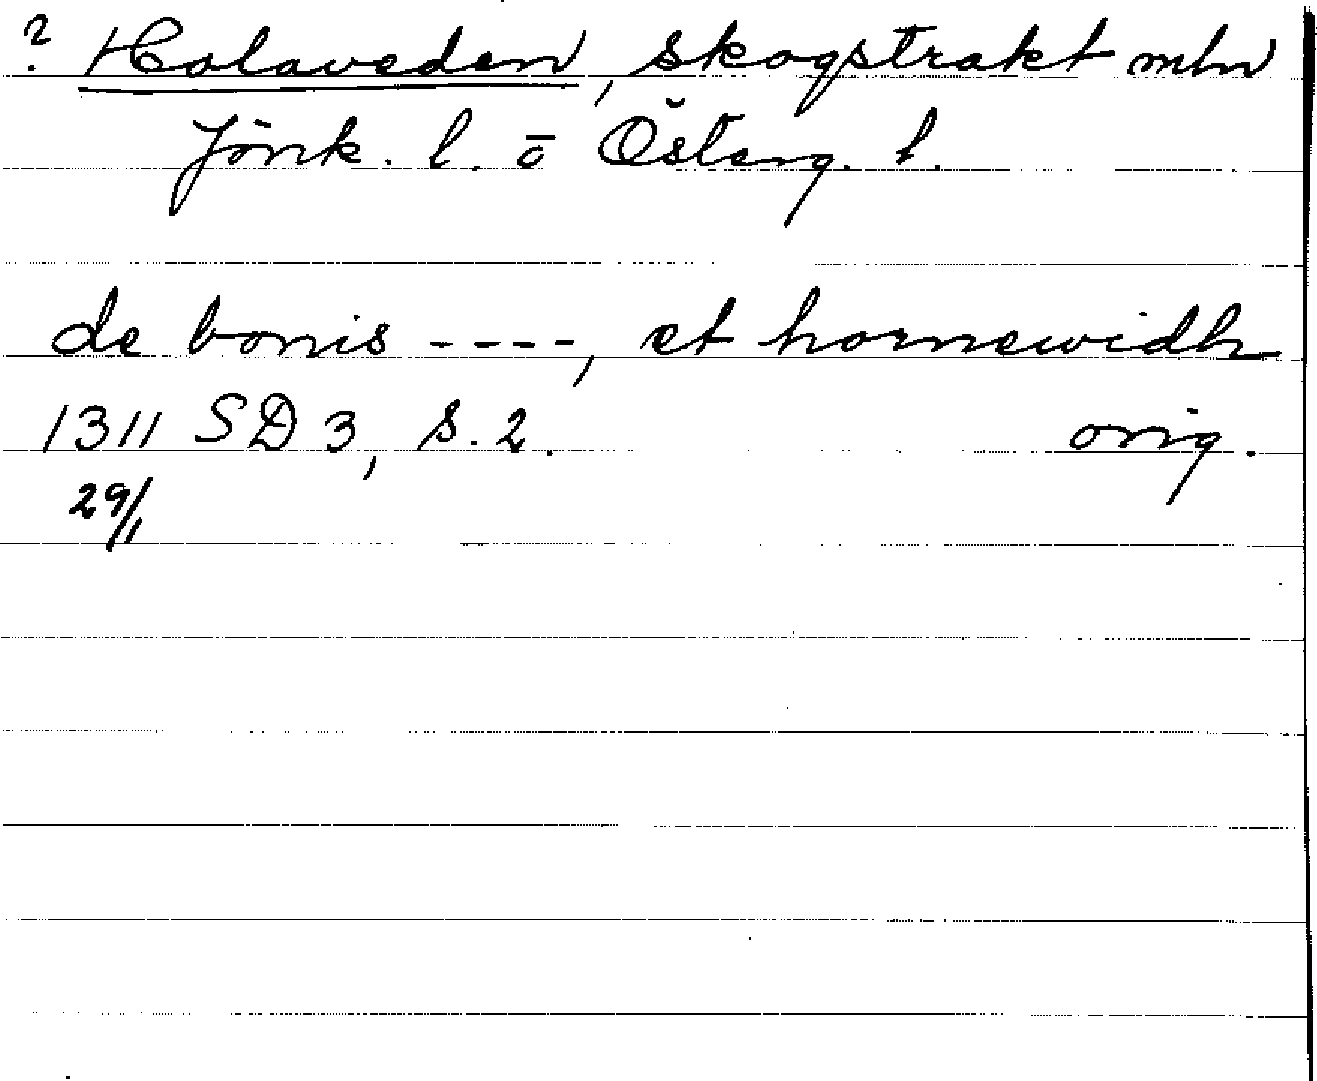 ? Holaveden, skogstrakt mln
Jönk. l. o Österg. l.
de bonis ----, et hornewidh
1311 SD 3, s. 2. orig.
29/1